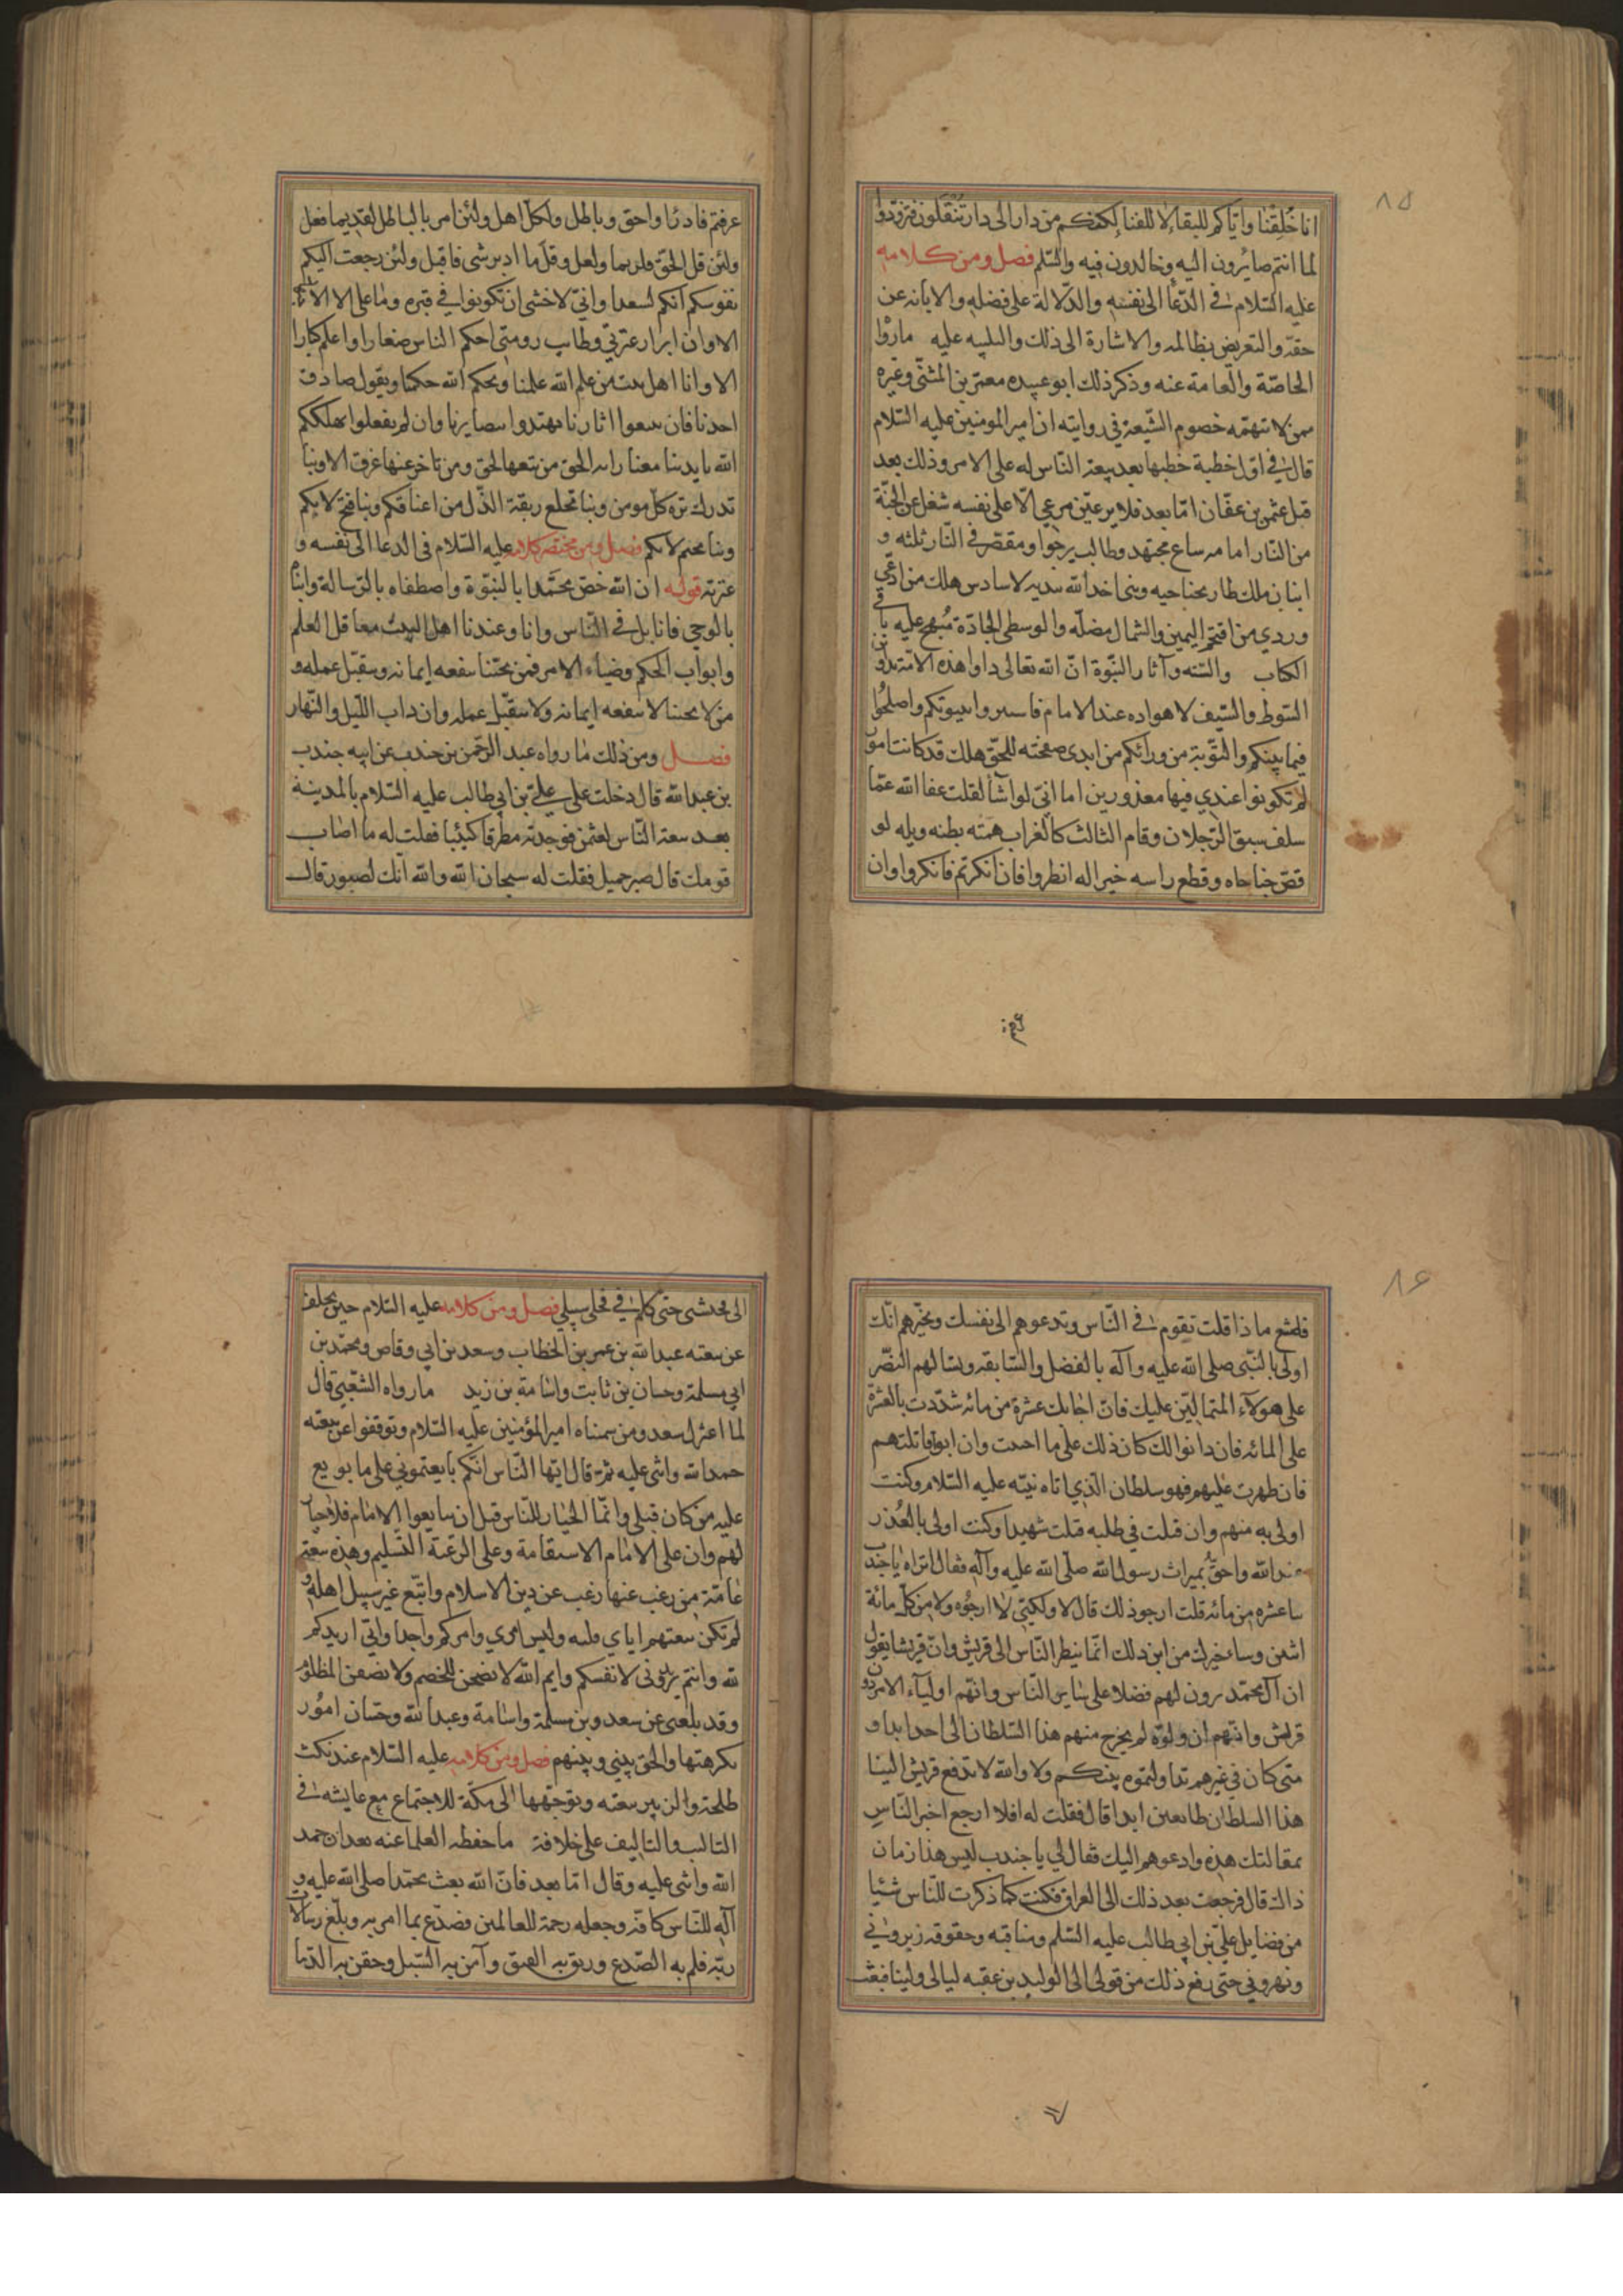 ٨٥
انا خُلِقْنا واياكم للبقاء لا للفناء لكنكم من دار الى دار تُنْقَلُون فتزوّدوا
لما انتم صايرون اليه وخالدون فيه والسّلم فصل ومن كلامه
عليه السّلام في الدّعا الى نفسه والدّلالة على فضله والابانه عن
حقه والتعريض بظالمه والاشارة الى ذلك والتنبيه عليه مارواْ
الخاصّة والعامة عنه وذكر ذلك ابو عبيده معمر بن المثنّى وغيره
ممن لا يتهمه خصوم الشّيعة في روايته ان امير المومنين عليه السّلام
قال في اوّل خطبة خطبها بعد بيعة النّاس له على الامر وذلك بعد
قتل عثمن بن عفّان امّا بعد فلا يرعينّ مرعي الّا على نفسه شغل عن الجنّة
من النّار امامه ساع مجتهد وطالب يرجوا ومقصّر في النّار ثلثه و
اثنان ملك طار بجناحيه ونبى اخذ الله بيديه لا سادس هلك من ادّعى
وردي من اقتحم اليمين والشمال مضلّه والوسطى الجادّة مُنهج عليه با
في الكتاب والسّنه وآثار النّبوة انّ الله تعالى داوا هذه الامّة بدوآئين
السّوط والسّيف لا هواده عند الامام فاستروا ببيوتكم واصلحُوا
فيما بينكم والتّوبة من ورائكم من ابدى صفحته للحقّ هلك قد كانت امور
لم تكونوا عندي فيها معذورين اما انّي لو اشأ لقلت عفا الله عمّا
سلف سبق الرّجلان وقام الثالث كالغراب همّته بطنه ويله لو
قصّ جناحاه وقطع راسه خيرا له انظروا فان انكرتم فانكروا وان
عرفتم
عرفتم فادروا حق وباطل ولكلّ اهل ولئن امر بالباطل لقديما فعل
ولئن قل الحقّ فلربما ولعل وقلّ ما ادبر شى فاقبل ولئن رجعت اليكم
نفوسكم انكم لسعدا واني لاخشى ان تكونوا في فتره وما على الا الاجتهاد
الا وان ابرار عترتي وطايب رومتي احكم الناس صغارا واعلم كبارا
الا وانا اهل بيت من علم الله علمنا وبحكم الله حكمنا وبقول صادق
اخذنا فان تتبعوا اثارنا تهتدوا ببصايرنا وان لم تفعلوا يهلككم
الله بايدينا معنا راية الحق من تبعها لحق ومن تاخر عنها غرق الا وبنا
تدرك تره كلّ مومن وبنا تخلع ربقة الذّل من اعناقكم وبنا فتح لا بكم
وبنا يختم لا بكم فصل ومن مختصر كلامه عليه السّلام في الدعا الى نفسه و
عترته قوله ان الله خصّ محمّدا بالنبوّة واصطفاه بالرّسالة وانبأ
بالوحي فانا بل في النّاس وانا وعندنا اهل البيت معاقل العلم
وابواب الحكم وضياء الامر فمن يحبّنا ينفعه ايمانه ويتقبّل عمله و
من لا يحبنا لا ينفعه ايمانه ولا يتقبّل عمله وان داب اللّيل والنّهار
فصل ومن ذلك ما رواه عبد الرّحمن بن جندب عن ابيه جندب
بن عبد الله قال دخلت على علي بن ابي طالب عليه السّلام بالمدينة
بعد بيعة النّاس لعثمن فوجدته مطرقا كئيبا فقلت له ما اصاب
قومك قال صبر جميل فقلت له سبحان الله والله انّك لصبور قال
٨٦
فاصنع ماذا قلت تقوم في النّاس وتدعوهم الى نفسك وتخبرهم انّك
اولى بالنّبى صلى الله عليه وآله بالفضل والسّابقة وتسالهم النّصر
على هولآء المتمالين عليك فان اجابك عشرة من مائه شدّدت بالعشرة
على المائه فان دانوا لك كان ذلك على ما احببت وان ابوا قاتلتهم
فان ظهرت عليهم فهو سلطان الّذي اتاه نبيّه عليه السّلام وكنت
اولى به منهم وان قتلت في طلبه قتلت شهيدا وكنت اولى بالعُذر
عند الله واحقُّ بميراث رسول الله صلّى الله عليه وآله فقال اتراه يا جندب
بايعا عشره من مائه قلت ارجو ذلك قال لا ولكنّي لا ارجوُه ولا من كلّ مائة
اثنين وساخبرك من اين ذلك انّما ينظر النّاس الى قريش وانّ قريشا يقول
ان آل محمّد يرون لهم فضلا على ساير النّاس وانّهم اوليآء الامر دون
قريش وانّهم ان ولوّه لم يخرج منهم هذا السّلطان الى احد ابدا و
متى كان في غيرهم تداولتموه بينكم ولا والله لا تدفع قريش الينا
هذا السلطان طايعين ابدا قال فقلت له افلا ارجع اخبر النّاس
بمقالتك هذه وادعوهم اليك فقال لي يا جندب ليس هذا زمان
ذاك قال فرجعت بعد ذلك الى العراق فكنت كلما ذكرت للنّاس شيئا
من فضايل علي بن ابي طالب عليه السّلم ومناقبه وحقوقه زبروني
ونهروني حتى رفع ذلك من قولي الى الوليد بن عقبه ليالي ولينا فبعث
الى فحبسنى حتى كلم في فخلى سبيلي فصل ومن كلامه عليه السّلام حين تخلف
عن بيعته عبد الله بن عمر بن الخطاب وسعد بن ابي وقاص ومحمّد بن
ابي مسلمة وحسان بن ثابت واسامة بن زيد مارواه الشّعبي قال
لما اعتزل سعد ومن سميناه امير المؤمنين عليه السّلام وتوقفوا عن بيعته
حمد الله واثنى عليه ثمّ قال ايّها النّاس انّكم بايعتموني على ما بويع
عليه من كان قبلي وانّما الخيار للنّاس قبل ان يبايعوا الامام فلا خيار
لهم وان على الامام الاستقامة وعلى الرّعيّة التّسليم وهذه بيعة
عامّة من رغب عنها رغب عن دين الاسلام واتّبع غير سبيل اهله و
لم تكن بيعتهم اياي فلته وليس امري وامركم واحدا وانّي اريدكم
لله وانتم تريدوني لانفسكم وايم الله لانصحن للخصم ولانصفن المظلوم
وقد بلغني عن سعد وبن مسلمة واسامة وعبد الله وحسان امُور
كرهتها والحق بيني وبينهم فصل ومن كلامه عليه السّلام عند نكث
طلحة والزبير بيعته وتوجّهها الى مكّة للاجتماع مع عايشه في
التاليب والتاليف على خلافة ما حفظه العلما عنه بعد ان حمد
الله واثنى عليه وقال امّا بعد فانّ الله بعث محمّدا صلى الله عليه و
آله للنّاس كافّة وجعله رحمة للعالمين فصدّع بما امر به وبلّغ رسالات
ربّه فلم به الصّدع ورتق به الفتق وآمن به السّبل وحقن به الدّما